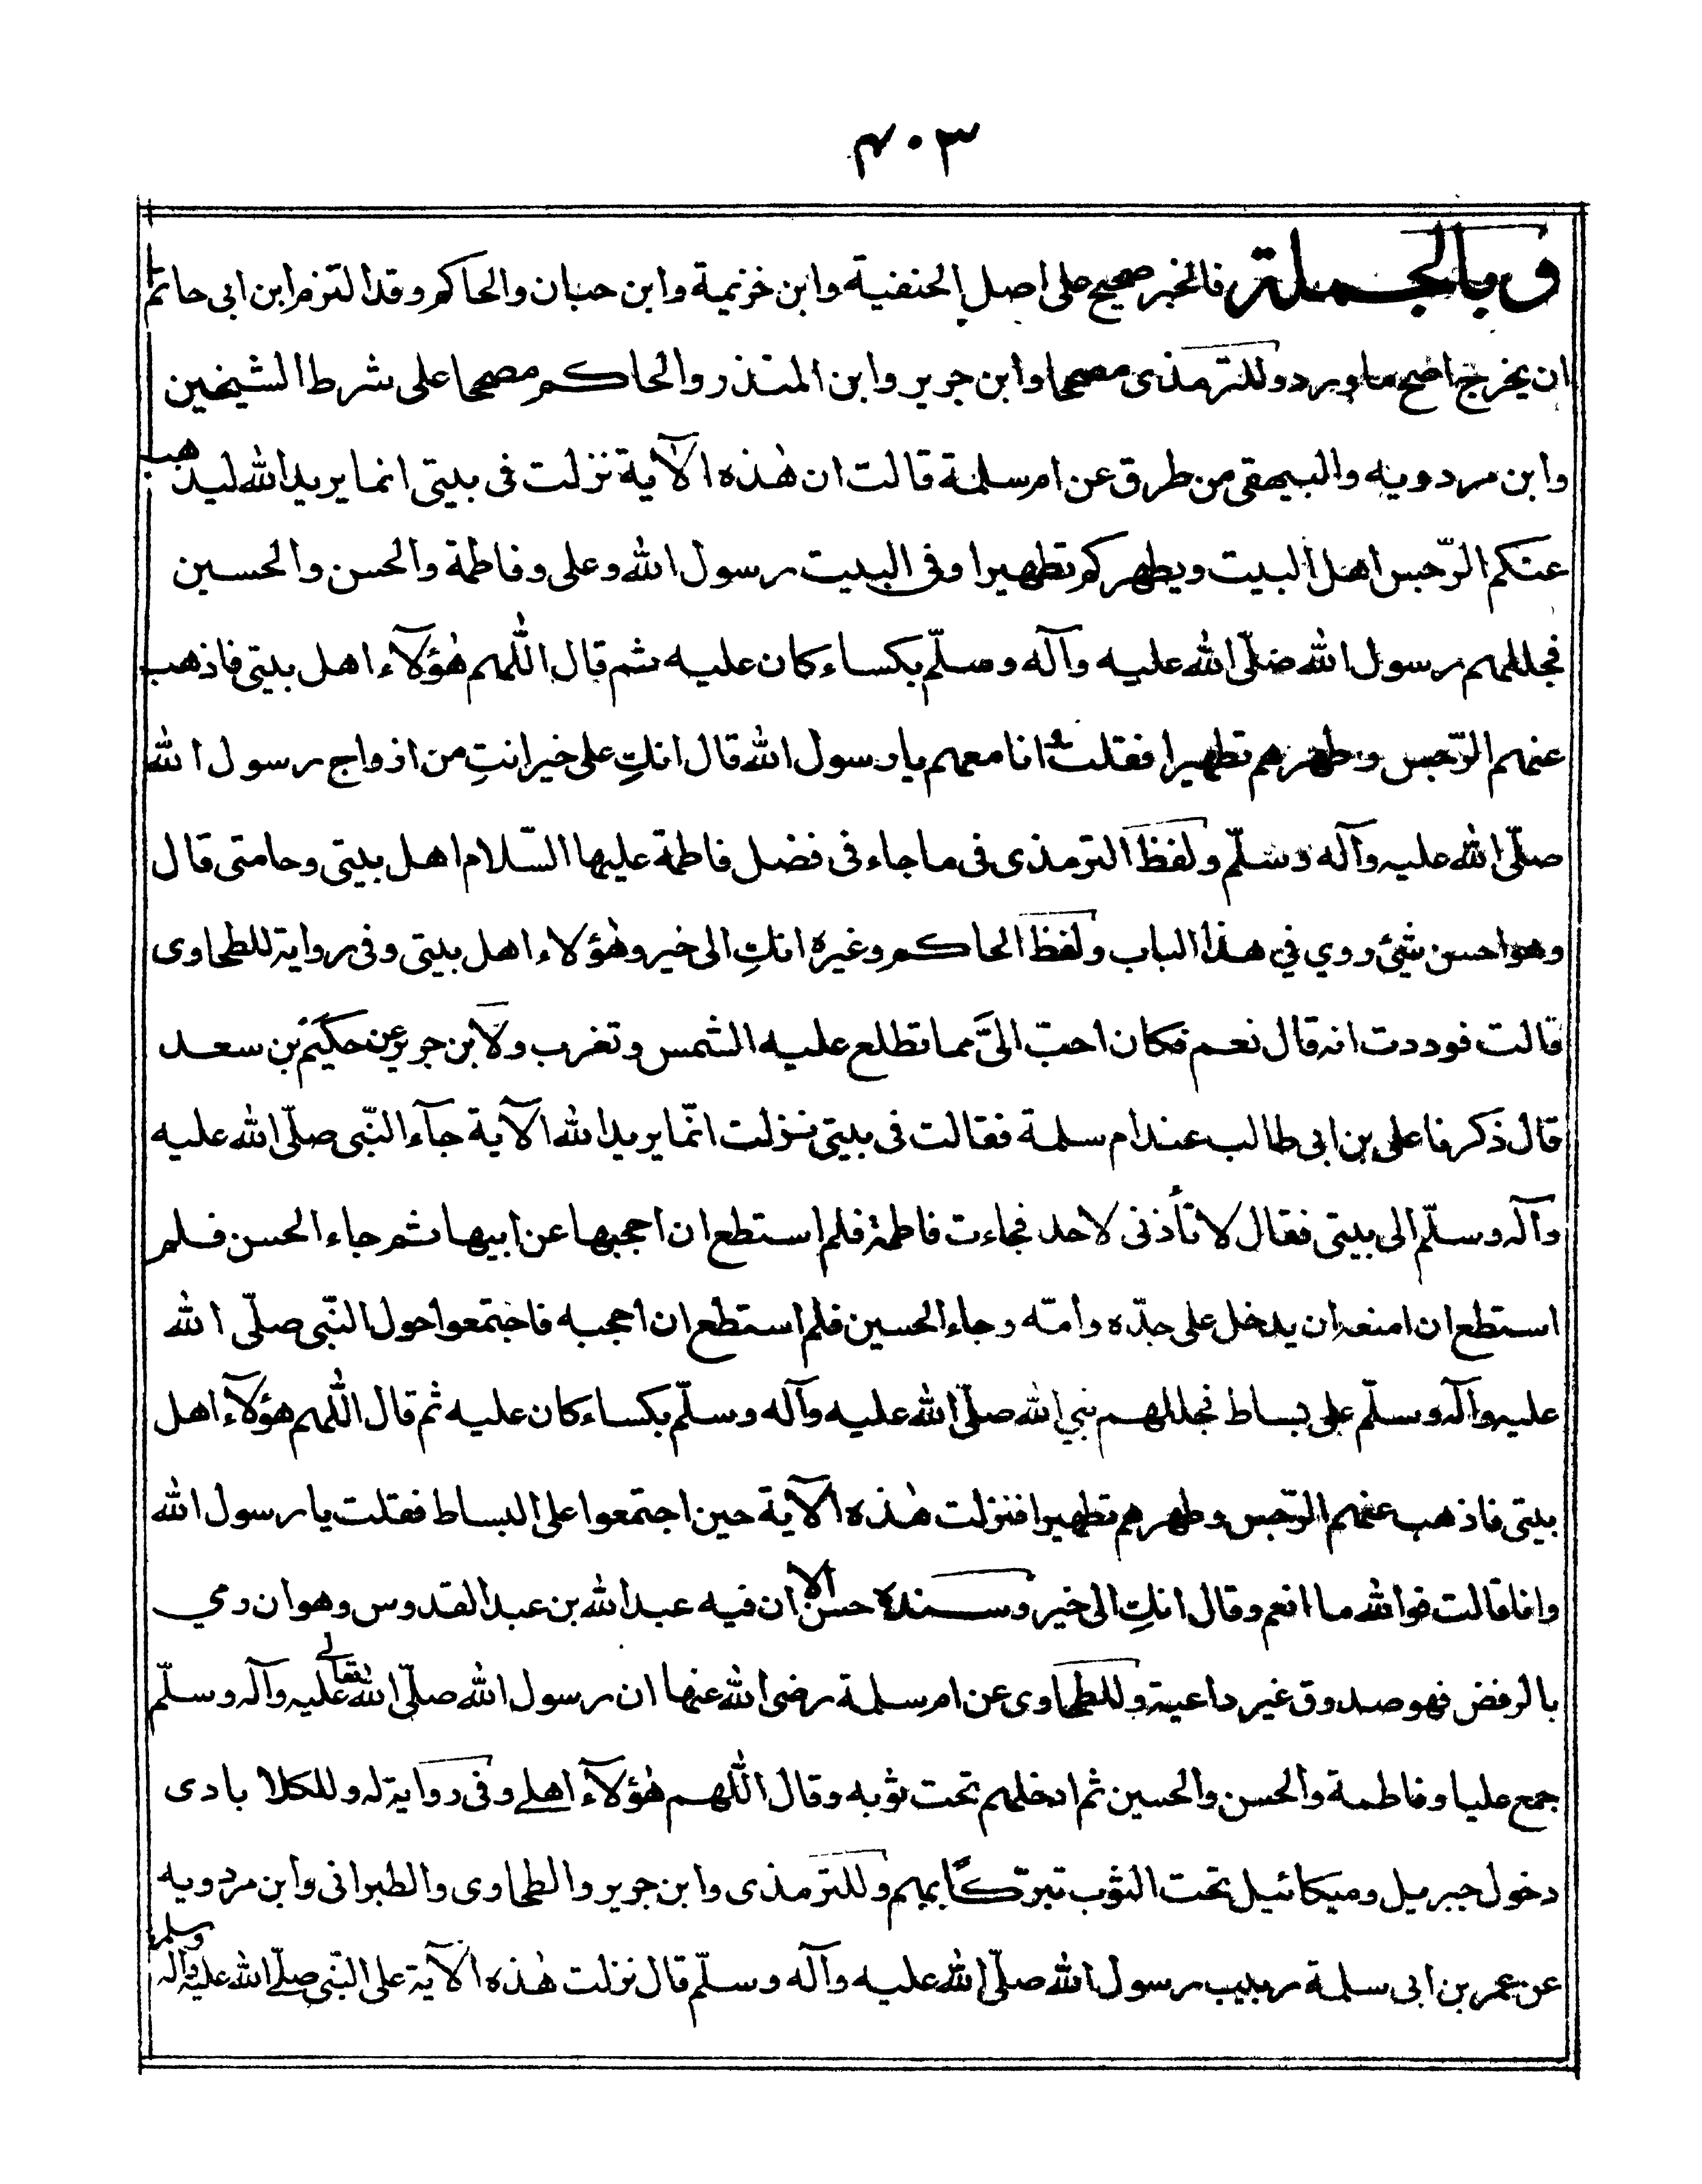 ٣٠٤
وبالجملة فالخبر صحيح على اصل الحنفية وابن خزيمة وابن حبان والحاكم وقد التزم ابن ابى حاتم
ان يخرج اصح ما ورد وللترمذى مصححا وابن جرير وابن المنذر والحاكم مصححا على شرط الشيخين
وابن مردويه والبيهقى من طرق عن ام سلمة قالت ان هٰذه الآية نزلت فى بيتى انما يريد الله ليذهب
عنكم الرّجس اهل البيت ويطهركم تطهيرا وفى البيت رسول الله وعلى وفاطمة والحسن والحسين
فجللهم رسول الله صلّى الله عليه وآله وسلّم بكساء كان عليه ثم قال اللّٰهم هٰؤلآء اهل بيتى فاذهب
عنهم الرّجس وطهرهم تطهيرا فقلت انا معهم يا رسول الله قال انكِ على خير انتِ من ازواج رسول الله
صلّى الله عليه وآله وسلّم ولفظ الترمذى فى ما جاء فى فضل فاطمة عليها السّلام اهل بيتى وحامتى قال
وهو احسن شيئ روي في هذا الباب ولفظ الحاكم وغيره انكِ الى خير وهٰؤلاء اهل بيتى وفى رواية للطحاوى
قالت فوددت انه قال نعم فكان احبّ الىَّ مما تطلع عليه الشمس وتغرب ولابن جرير عن حكيم بن سعد
قال ذكرنا على بن ابى طالب عند ام سلمة فقالت فى بيتى نزلت انّما يريد الله الآية جآء النّبى صلّى الله عليه
وآله وسلّم الى بيتى فقال لا تأذنى لاحد فجاءت فاطمة فلم استطع ان احجبها عن ابيها ثم جاء الحسن فلم
استطع ان امنعه ان يدخل على جدّه وأمّه وجاء الحسين فلم استطع ان احجبه فاجتمعوا حول النّبى صلّى الله
عليه وآله وسلّم على بساط فجللهم نبي الله صلّى الله عليه وآله وسلّم بكساء كان عليه ثم قال اللّٰهم هؤلآء اهل
بيتى فاذهب عنهم الرّجس وطهرهم تطهيرا فنزلت هٰذه الآية حين اجتمعوا على البساط فقلت يا رسول الله
وانا قالت فوالله ما انعم وقال انكِ الى خير وسنده حسن الا ان فيه عبد الله بن عبد القدوس وهو ان رمي
بالرفض فهو صدوق غير داعية وللطحاوى عن ام سلمة رضى الله عنها ان رسول الله صلّى الله تعالى عليه وآله وسلّم
جمع عليا وفاطمة والحسن والحسين ثم ادخلهم تحت ثوبه وقال اللّٰهم هٰؤلآء اهلى وفى رواية له وللكلاباذى
دخول جبرميل وميكائيل تحت الثوب تبرّكًا بهم وللترمذى وابن جرير والطحاوى والطبرانى وابن مردويه
عن عمر بن ابى سلمة ربيب رسول الله صلّى الله عليه وآله وسلّم قال نزلت هٰذه الآية على النّبى صلّى الله عليه وآله وسلم